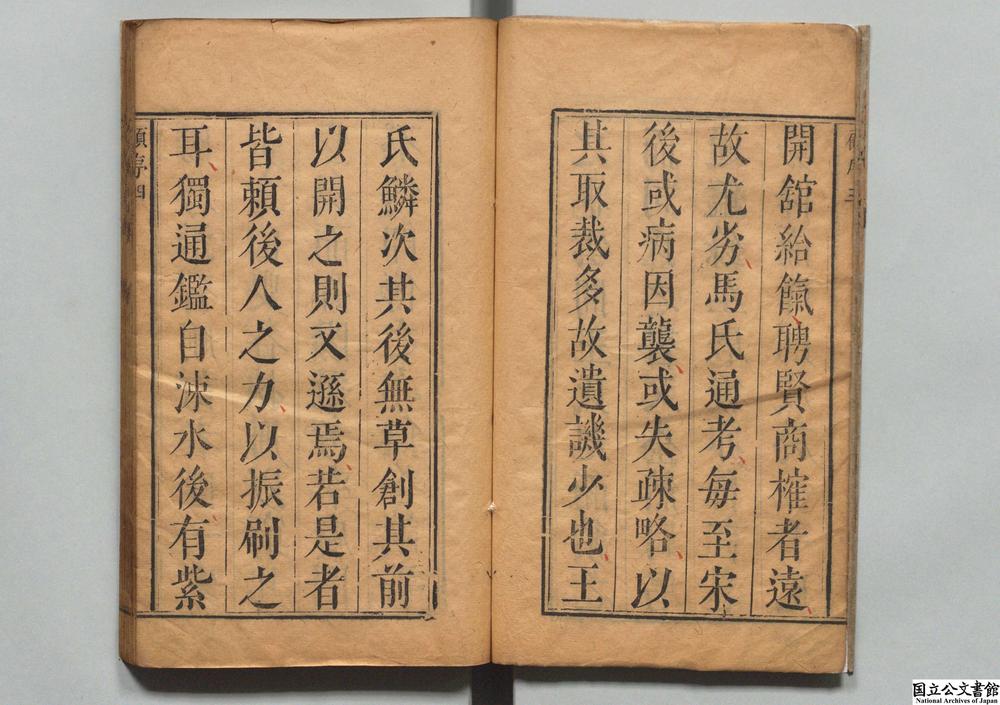 開舘給餼聘賢商榷者遠
故尤劣馬氏通考每至宋
後或病因襲或失疎略以
其取裁多故遺譏少也王
氏鱗次其後無草創其前
以開之則又遜焉若是者
皆賴後人之力以振刷之
耳獨通鑑自涑水後有紫
序四
国立公文書館
National Archives of Japan